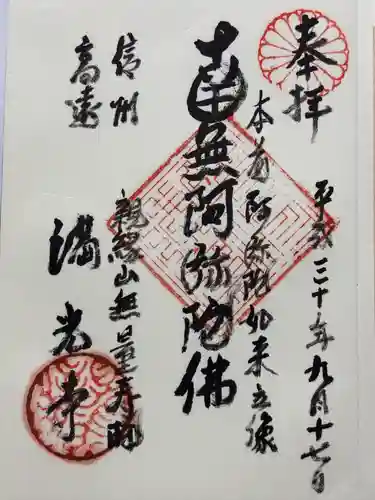 奉拝
平成三十年九月十七日
本尊阿弥陀如来立像
南無阿弥陀佛
信州
高遠
親縁山無量寿院
満光寺